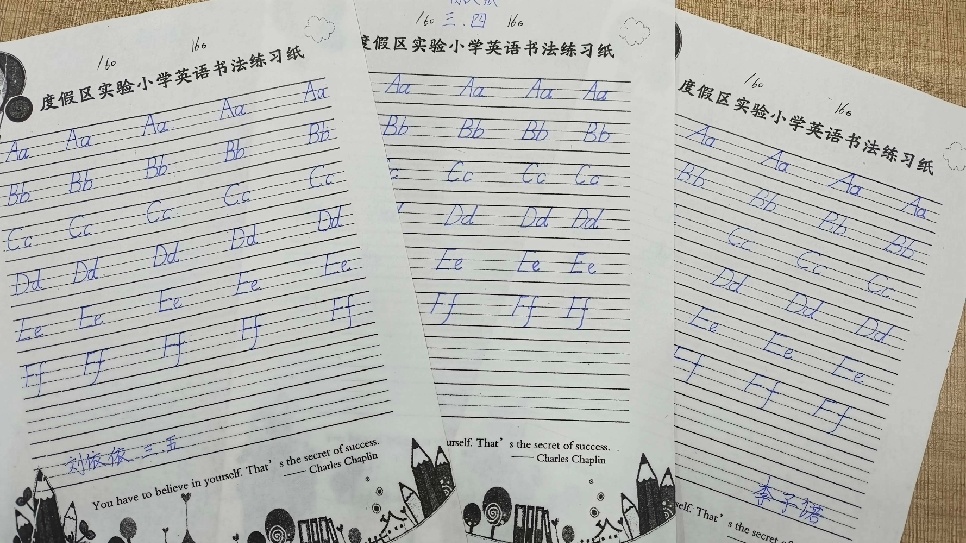 160 160
度假区实验小学英语书法练习纸
Aa Aa Aa Aa Aa
Bb Bb Bb Bb Bb
Cc Cc Cc Cc Cc
Dd Dd Dd Dd Dd
Ee Ee Ee Ee Ee
Ff Ff Ff Ff Ff
三.五
You have to believe in yourself. That's the secret of success.
—— Charles Chaplin
160 三.四 160
度假区实验小学英语书法练习纸
Aa Aa Aa Aa
Bb Bb Bb Bb
Cc Cc Cc
Dd Dd Dd
Ee Ee Ee
Ff Ff Ff
urself. That's the secret of success.
—— Charles Chaplin
160 160
度假区实验小学英语书法练习纸
Aa Aa Aa Aa
Bb Bb Bb Bb
Cc Cc Cc
Dd Dd Dd
Ee Ee Ee
Ff Ff Ff
李子諾
self. That's the secret of succe
—— Cha